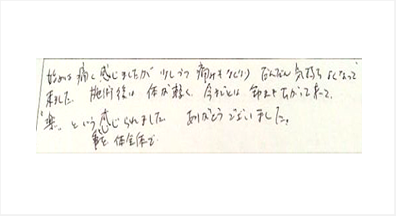 始めは痛く感じましたが少しづつ痛みもなくなり だんだん気持ちよくなって
来ました。施術後は体が軽く、今までとは
「楽」という 感じられました ありがとうございました。
事を 体全体で